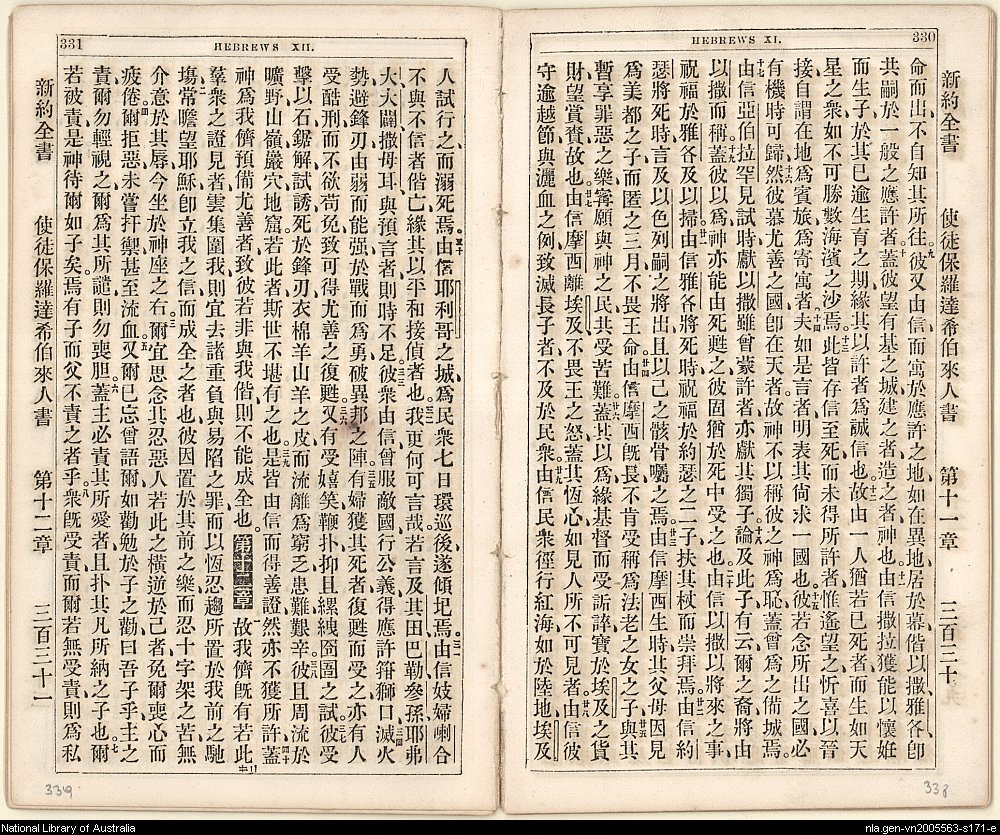 330
HEBREWS XI.
新約全書 使徒保羅達希伯來人書 第十一章 三百三十
命而出、不自知其所往。九彼又由信而寓於應許之地、如在異地、居於幕偕以撒雅各即
共嗣於一般之應許者。十蓋彼望有基之城、建之者造之者神也。十一由信撒拉獲能以懷妊
而生子、於其已逾生育之期、緣其以許者爲誠信也。十二故由一人猶若已死者、而生如天
星之衆、如不可勝數海濱之沙焉。十三此皆存信至死、而未得所許者、惟遙望之、忻喜以晉
接、自謂在地爲賓旅、爲寄寓者。十四夫如是言者、明表其尙求一國也。十五彼若念所出之國、必
有機時可歸。十六然彼慕尤善之國、卽在天者、故神不以稱彼之神爲恥、蓋曾爲之備城焉。
十七由信亞伯拉罕見試時、獻以撒、雖曾蒙許者、亦獻其獨子。十八論及此子有云、爾之裔將由
以撒而稱。十九蓋彼以爲神亦能由死甦之、彼固猶於死中受之也。二十由信以撒以將來之事、
祝福於雅各及以掃。廿一由信雅各將死時、祝福於約瑟之二子、扶其杖而崇拜焉。廿二由信約
瑟將死時、言及以色列嗣之將出、且以己之骸骨囑之焉。廿三由信摩西生時、其父母因見
爲美都之子、而匿之三月、不畏王命。廿四由信摩西旣長、不肯受稱爲法老之女之子。廿五與其
暫享罪惡之樂、寗願與神之民共受苦難。廿六蓋其以爲緣基督而受詬誶、寶於埃及之貨
財、望賞賚故也。廿七由信摩西離埃及、不畏王之怒、蓋其恆心如見人所不可見者。廿八由信彼
守逾越節、與灑血之例、致滅長子者、不及於民衆。廿九由信民衆徑行紅海、如於陸地、埃及
338
331
HEBREWS XII.
人試行之而溺死焉。三十由信耶利哥之城、爲民衆七日環巡後、遂傾圮焉。三一由信妓婦喇合
不與不信者偕亡、緣其以平和接偵者也。三二我更何可言哉、若言及其田、巴勒、參孫、耶弗
大、大闢、撒母耳、與預言者、則時不足。三三彼衆由信、曾服敵國、行公義、得應許、箝獅口、三四滅火
勢、避鋒刃、由弱而能强、於戰而爲勇、破異邦之陣。三五有婦獲其死者復甦而受之、亦有人
受酷刑而不欲苟免、致可得尤善之復甦。三六又有受嬉笑鞭扑、抑且縲絏囹圄之試。三七彼受
擊以石、鋸解、試誘、死於鋒刃、衣棉羊山羊之皮、而流離爲窮乏患難艱辛。三八彼且周流於
曠野山嶺巖穴地窟、若此者斯世不堪有之也。三九是皆由信而得善證、然亦不獲所許。四十蓋
神爲我儕預備尤善者、致彼若非與我偕、則不能成全也。 第十二章 一故我儕旣有若此
羣衆之證見者、雲集圍我、則宜去諸重負、與易陷之罪、而以恆忍趨所置於我前之馳
塲、二常瞻望耶穌、卽立我之信而成全之者也、彼因置於其前之樂、而忍十字架之苦、無
介意於其辱、今坐於神座之右。三爾宜思念其忍惡人若此之橫逆於己者、免爾喪心而
疲倦。四爾拒惡未嘗扞禦甚至流血。五又爾已忘曾語爾如勸勉於子之勸曰、吾子乎、主之
責爾勿輕視之、爾爲其所譴則勿喪胆。六蓋主必責其所愛者、且扑其凡所納之子也。七爾
若被責、是神待爾如子矣、焉有子而父不責之者乎。八衆旣受責、而爾若無受責、則爲私
新約全書 使徒保羅達希伯來人書 第十二章 三百三十一
339
National Library of Australia
nla.gen-vn2005563-s171-e